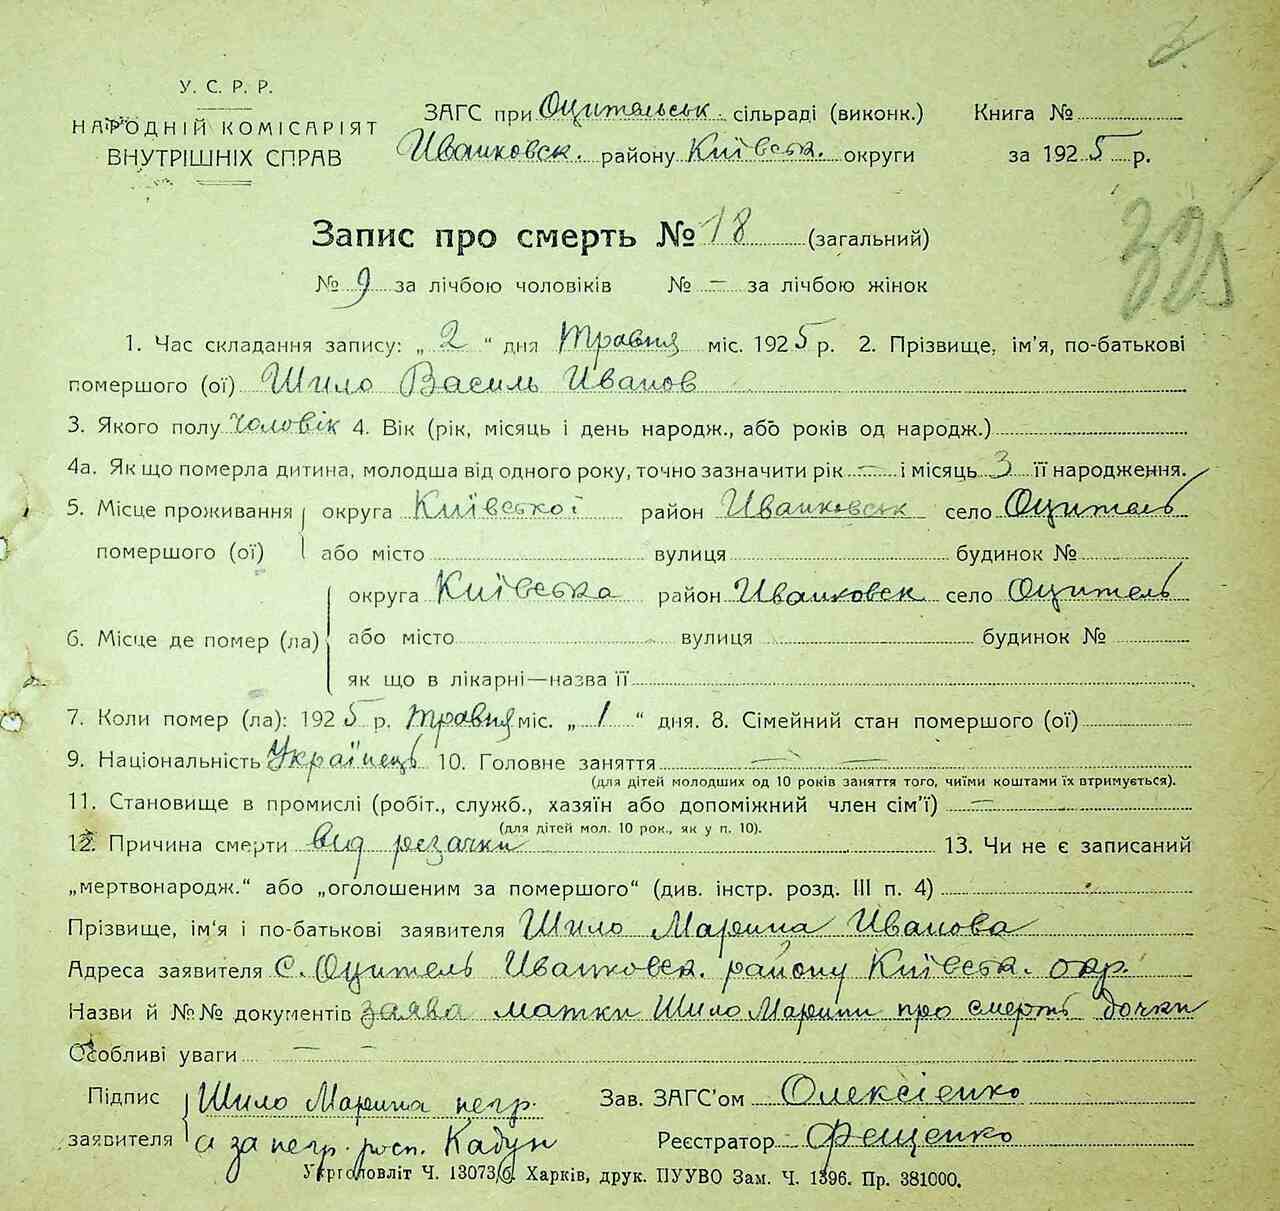 У. С. Р. Р.
НАРОДНІЙ КОМІСАРІЯТ
ВНУТРІШНІХ СПРАВ
ЗАГС при Оцительськ. сільраді (виконк.)
Иванковск. району Київськ. округи
Книга №
за 1925 р.
325
Запис про смерть № 18 (загальний)
№ 9 за лічбою чоловіків № — за лічбою жінок
1. Час складання запису: „ 2 “ дня Травня міс. 1925 р. 2. Прізвище, ім’я, по-батькові
помершого (ої) Шило Василь Иванов
3. Якого полу чоловік 4. Вік (рік, місяць і день народж., або років од народж.)
4а. Як що померла дитина, молодша від одного року, точно зазначити рік — і місяць 3 її народження.
5. Місце проживання помершого (ої) округа Київської район Иванковськ село Оцитель
або місто вулиця будинок №
6. Місце де помер (ла) округа Київська район Иванковск село Оцитель
або місто вулиця будинок №
як що в лікарні—назва її
7. Коли помер (ла): 1925 р. травня міс. „ 1 “ дня. 8. Сімейний стан помершого (ої)
9. Національність Українець 10. Головне заняття — —
(для дітей молодших од 10 років заняття того, чиїми коштами їх втримується).
11. Становище в промислі (робіт., служб., хазяїн або допоміжний член сім’ї) —
(для дітей мол. 10 рок., як у п. 10).
12. Причина смерти від резачки 13. Чи не є записаний
„мертвонародж.“ або „оголошеним за помершого“ (див. інстр. розд. III п. 4)
Прізвище, ім‘я і по-батькові заявителя Шило Марина Иванова
Адреса заявителя С. Оцитель Иванковск. району Київськ. окр.
Назви й №№ документів заява матки Шило Марини про смерть дочки
Особливі уваги — — —
Підпис заявителя Шило Марина негр.
а за негр. росп. Кадун
Зав. ЗАГС’ом Олексієнко
Реєстратор Фещенко
Укрголовліт Ч. 13073/б. Харків, друк. ПУУВО Зам. Ч. 1396. Пр. 381000.